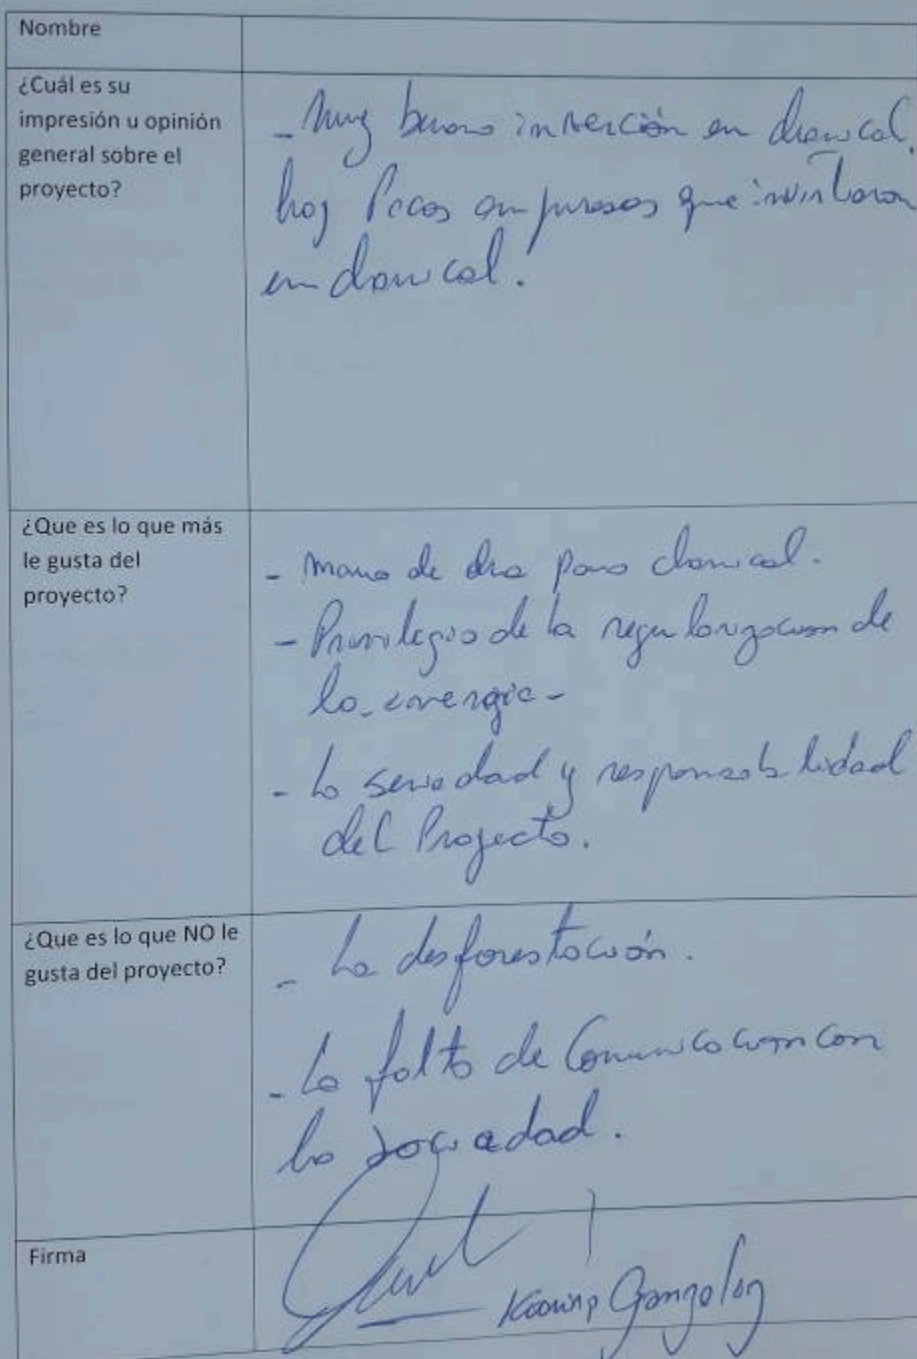 Nombre
¿Cuál es su
impresión u opinión
general sobre el
proyecto?
- Muy buena inversión en chamical.
hay Pocas empresas que invirtieron
en chamical.
¿Que es lo que más
le gusta del
proyecto?
- mano de obra para chamical.
- Privilegio de la regularizacion de
la energia -
- La seriedad y responsabilidad
del Proyecto.
¿Que es lo que NO le
gusta del proyecto?
- La desforestación.
- La falta de Comunicacion con
la sociedad.
Firma
Gonzalez